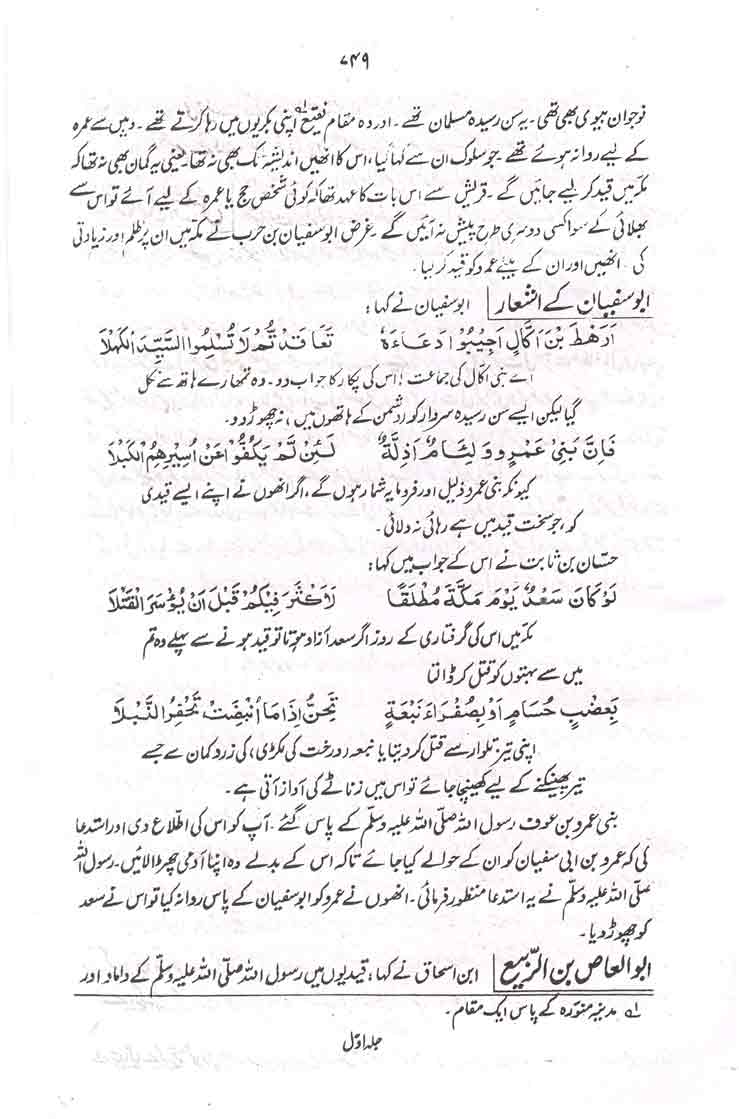 ۷۴۹
نوجوان بیوی بھی تھی۔ یہ سن رسیدہ مسلمان تھے۔ اور وہ مقام نقیع لہ اپنی بکریوں میں رہا کرتے تھے۔ وہیں سے عمرہ
کے لیے روانہ ہوئے تھے۔ جو سلوک ان سے کیا گیا، اس کا انھیں اندیشہ تک بھی نہ تھا۔ یعنی یہ گمان بھی نہ تھا کہ
مکہ میں قید کر لیے جائیں گے۔ قریش سے اس بات کا عہد تھا کہ کوئی شخص حج یا عمرہ کے لیے آئے تو اس سے
بھلائی کے سوا کسی دوسری طرح پیش نہ آئیں گے۔ غرض ابو سفیان بن حرب نے مکہ میں ان پر ظلم اور زیادتی
کی۔ انھیں اور ان کے بیٹے عمرو کو قید کر لیا۔
ابوسفیان کے اشعار ابو سفیان نے کہا:
اَرَهْطَ بْنَ اَكَّالٍ اَجِيْبُوْا دُعَاءَهٗ تَعَاقَدْتُّمْ لَا تُسْلِمُوا السَّيِّدَ الْكَهْلَا
اے بنی اکال کی جماعت! اس کی پکار کا جواب دو۔ وہ تمھارے ہاتھ سے نکل
گیا لیکن ایسے سن رسیدہ سردار کو (دشمن کے ہاتھوں میں) نہ چھوڑ دو۔
فَاِنَّ بَنِيْ عَمْرٍو وَلِئَامٌ اَذِلَّةٌ لَئِنْ لَّمْ يَكُفُّوْا عَنْ اَسِيْرِهِمُ الْكَبْلَا
کیونکر بنی عمرو ذلیل اور فرومایہ شمار ہوں گے، اگر انھوں نے اپنے ایسے قیدی
کو، جو سخت قید میں ہے رہائی نہ دلائی۔
حسّان بن ثابت نے اس کے جواب میں کہا:
لَوْ كَانَ سَعْدٌ يَوْمَ مَكَّةَ مُطْلَقًا لَاَكْثَرَ فِيْكُمْ قَبْلَ اَنْ يُّؤْسَرَ الْقَتْلَا
مکہ میں اس کی گرفتاری کے روز اگر سعد آزاد ہوتا تو قید ہونے سے پہلے وہ تم
میں سے بہتوں کو قتل کر ڈالتا
بِعَضْبٍ حُسَامٍ اَوْ بِصَفْرَاءَ نَبْعَةٍ تَحِنُّ اِذَا مَا اُنْبِضَتْ تَحْفِزُ النَّبْلَا
اپنی تیز تلوار سے قتل کر دیتا یا نبعہ (درخت کی لکڑی) کی زرد کمان سے جسے
تیر پھینکنے کے لیے کھینچا جائے تو اس میں زناٹے کی آواز آتی ہے۔
بنی عمرو بن عوف رسول اللہ صلّی اللہ علیہ وسلّم کے پاس گئے۔ آپ کو اس کی اطلاع دی اور استدعا
کی کہ عمرو بن ابی سفیان کو ان کے حوالے کیا جائے تاکہ اس کے بدلے وہ اپنا آدمی چھڑا لائیں۔ رسول اللہ
صلّی اللہ علیہ وسلّم نے یہ استدعا منظور فرمائی۔ انھوں نے عمرو کو ابوسفیان کے پاس روانہ کیا تو اس نے سعد
کو چھوڑ دیا۔
ابوالعاص بن الرّبیع ابن اسحاق نے کہا: قیدیوں میں رسول اللہ صلّی اللہ علیہ وسلّم کے داماد اور
لہ مدینہ منوّرہ کے پاس ایک مقام۔
جلد اوّل